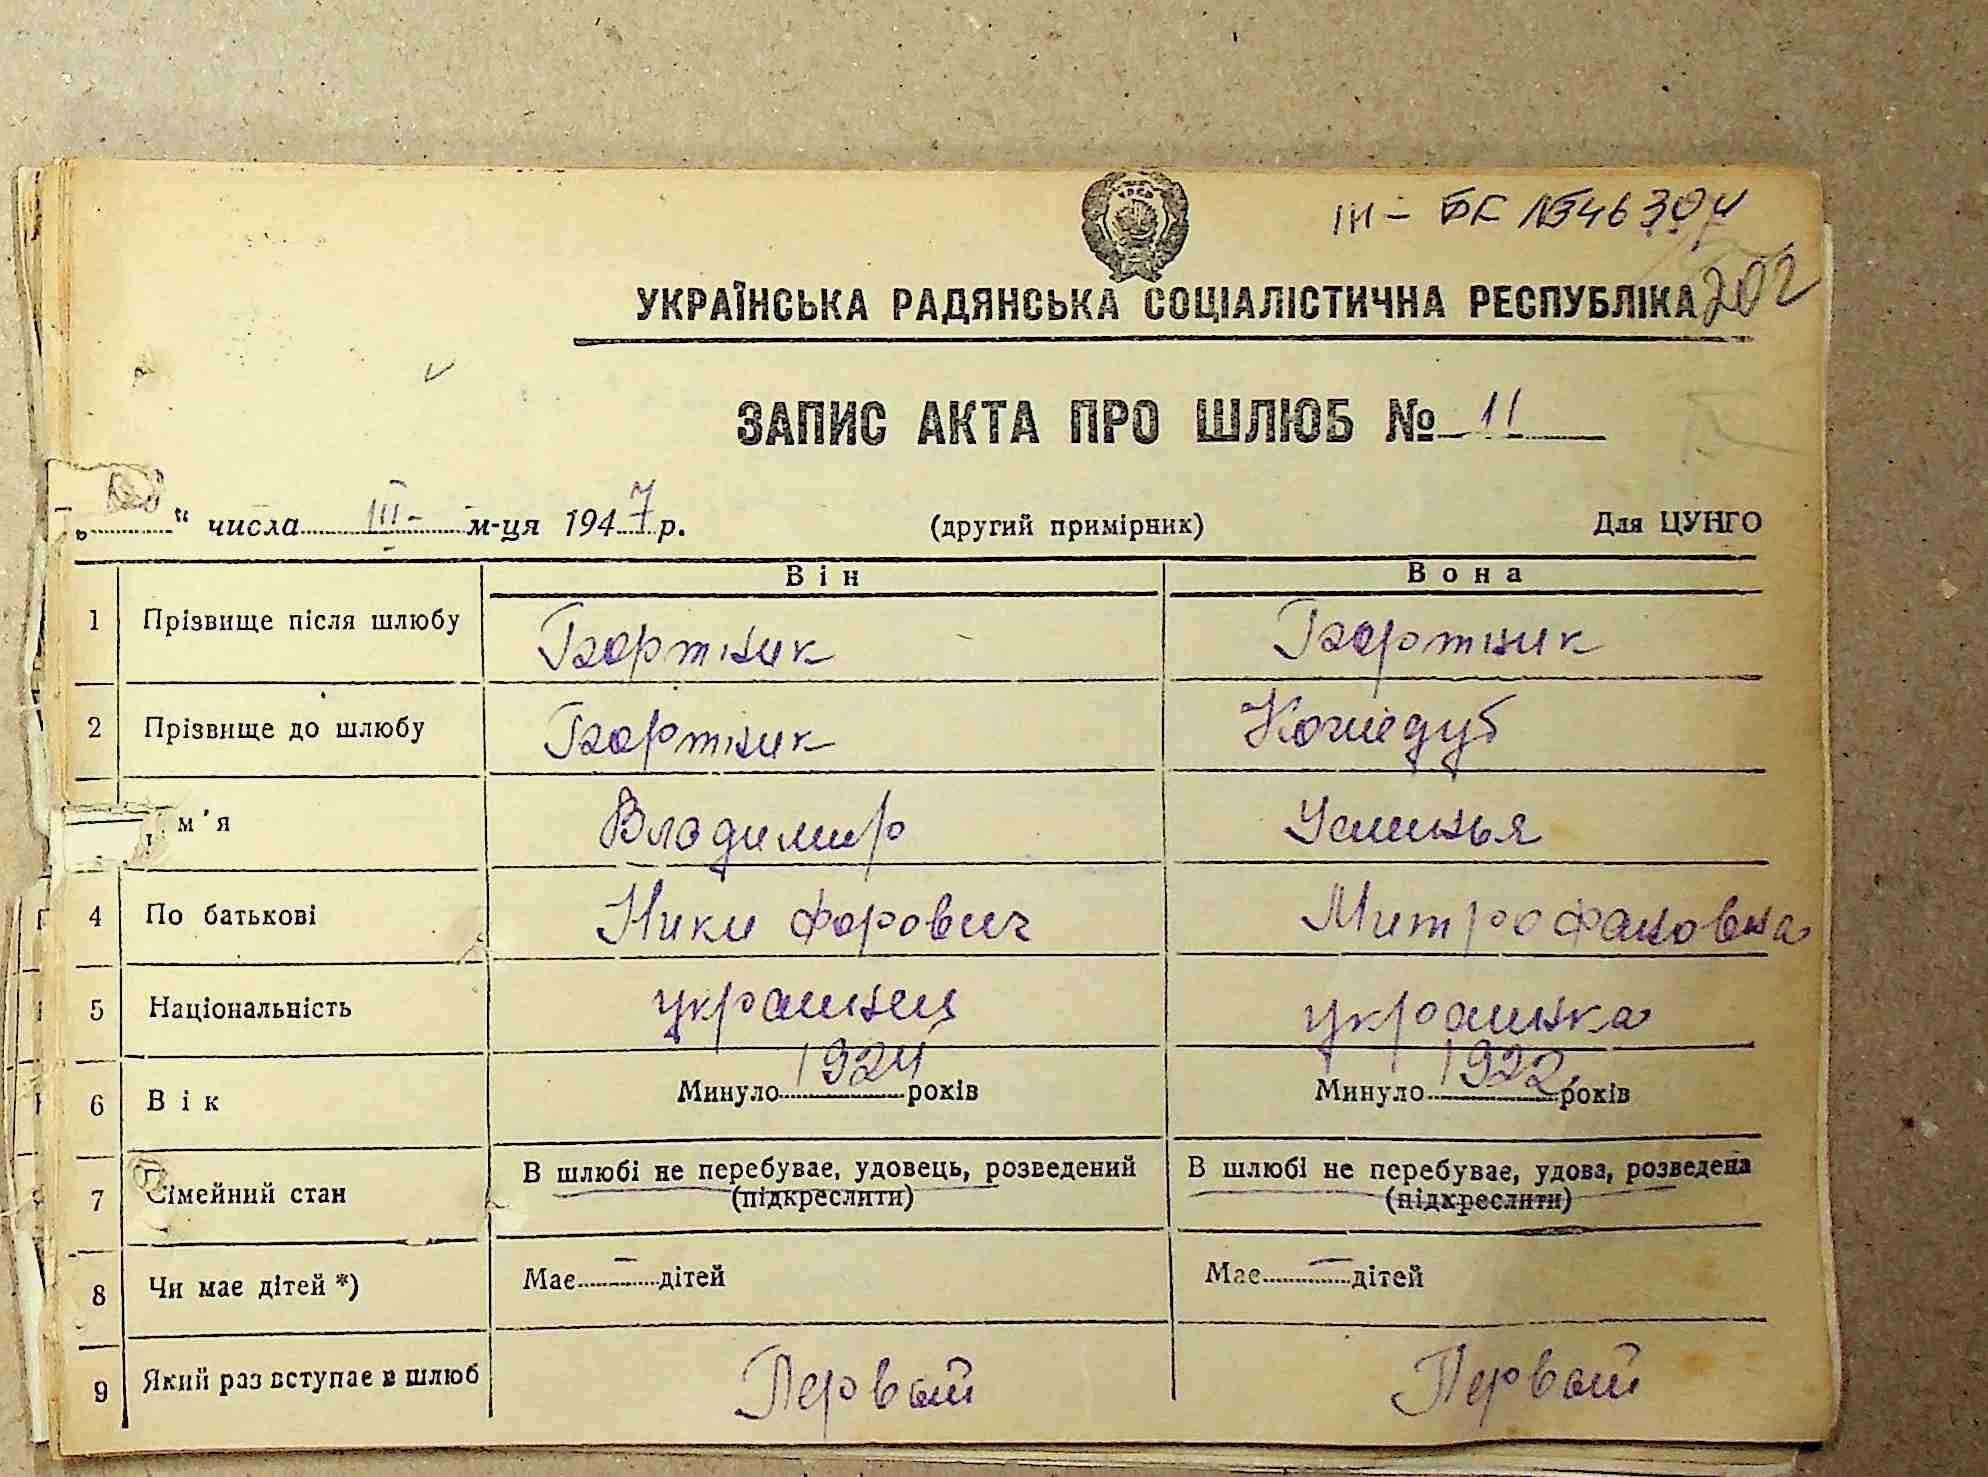 III - БК №346304
202
УКРАЇНСЬКА РАДЯНСЬКА СОЦІАЛІСТИЧНА РЕСПУБЛІКА
ЗАПИС АКТА ПРО ШЛЮБ № 11
„ “ числа III- м-ця 1947 р. (другий примірник) Для ЦУНГО
Він Вона
1 Прізвище після шлюбу Бортник Бортник
2 Прізвище до шлюбу Бортник Кошедуб
м'я Владимир Усинья
4 По батькові Никифорович Митрофановна
5 Національність украинец украинка
6 Вік Минуло 1924 років Минуло 1922 років
7 Сімейний стан В шлюбі не перебуває, удовець, розведений В шлюбі не перебуває, удова, розведена
(підкреслити) (підкреслити)
8 Чи має дітей *) Має - дітей Має - дітей
9 Який раз вступає в шлюб Первый Первый